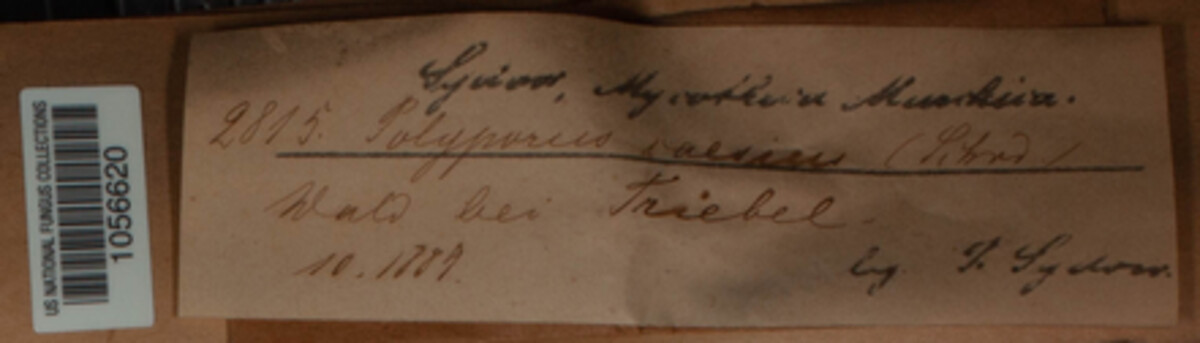 US NATIONAL FUNGUS COLLECTIONS
1056620
Sydow, Mycotheca Marchica.
2815. Polyporus caesius (Schrd)
Wald bei Triebel.
10. 1889.
leg. P. Sydow.